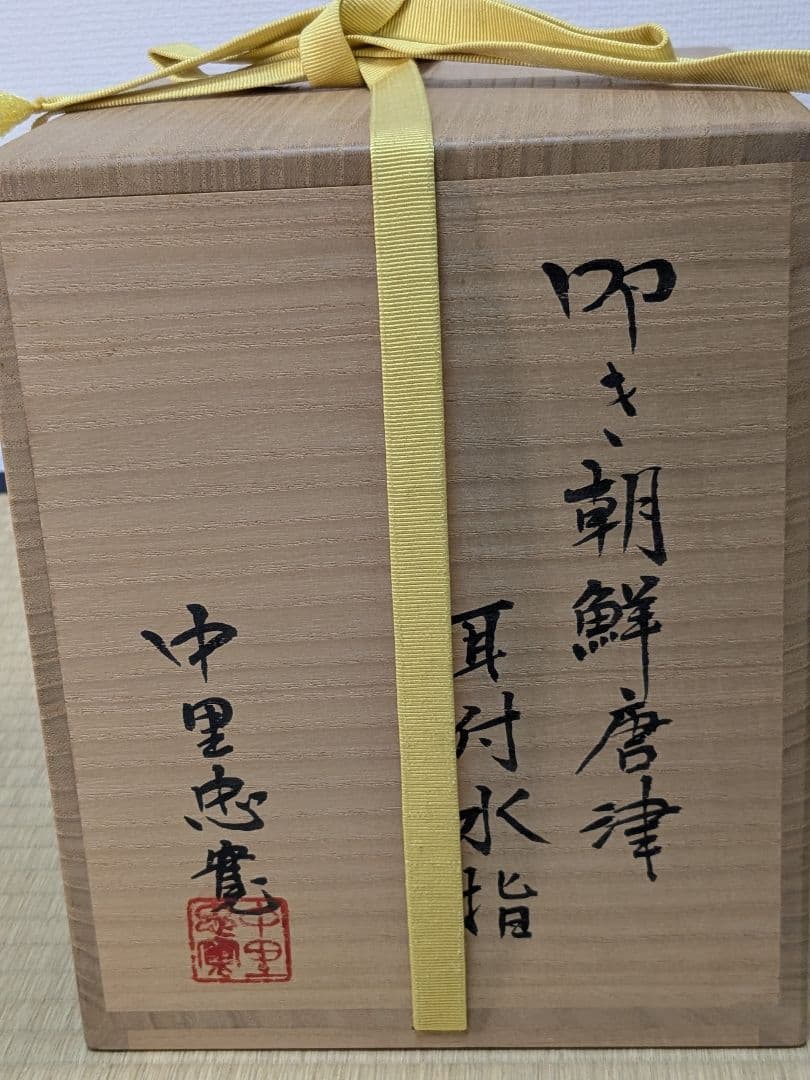 叩き朝鮮唐津
耳付水指
中里忠寛
中里
忠寛